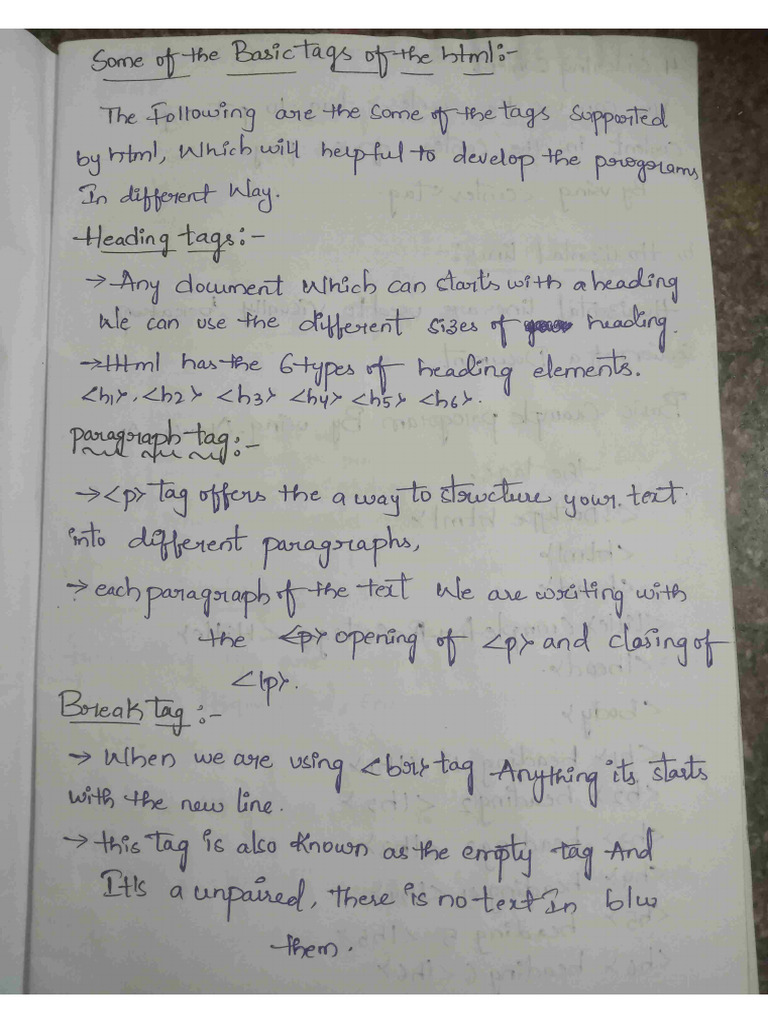 Some of the Basic tags of the html:-
The Following are the some of the tags supported
by html, Which will helpful to develop the programs
In different Way.
Heading tags:-
→ Any document which can starts with a heading
We can use the different sizes of heading.
→ Html has the 6 types of heading elements.
<h1>, <h2> <h3> <h4> <h5> <h6>.
paragraph tag:-
→ <p> tag offers the a way to structure your text
into different paragraphs,
→ each paragraph of the text We are writing with
the <p> opening of <p> and closing of
</p>.
Break tag:-
→ When we are using <br> tag Anything its starts
with the new line.
→ this tag is also known as the empty tag And
It's a unpaired, there is no text In b/w
them.